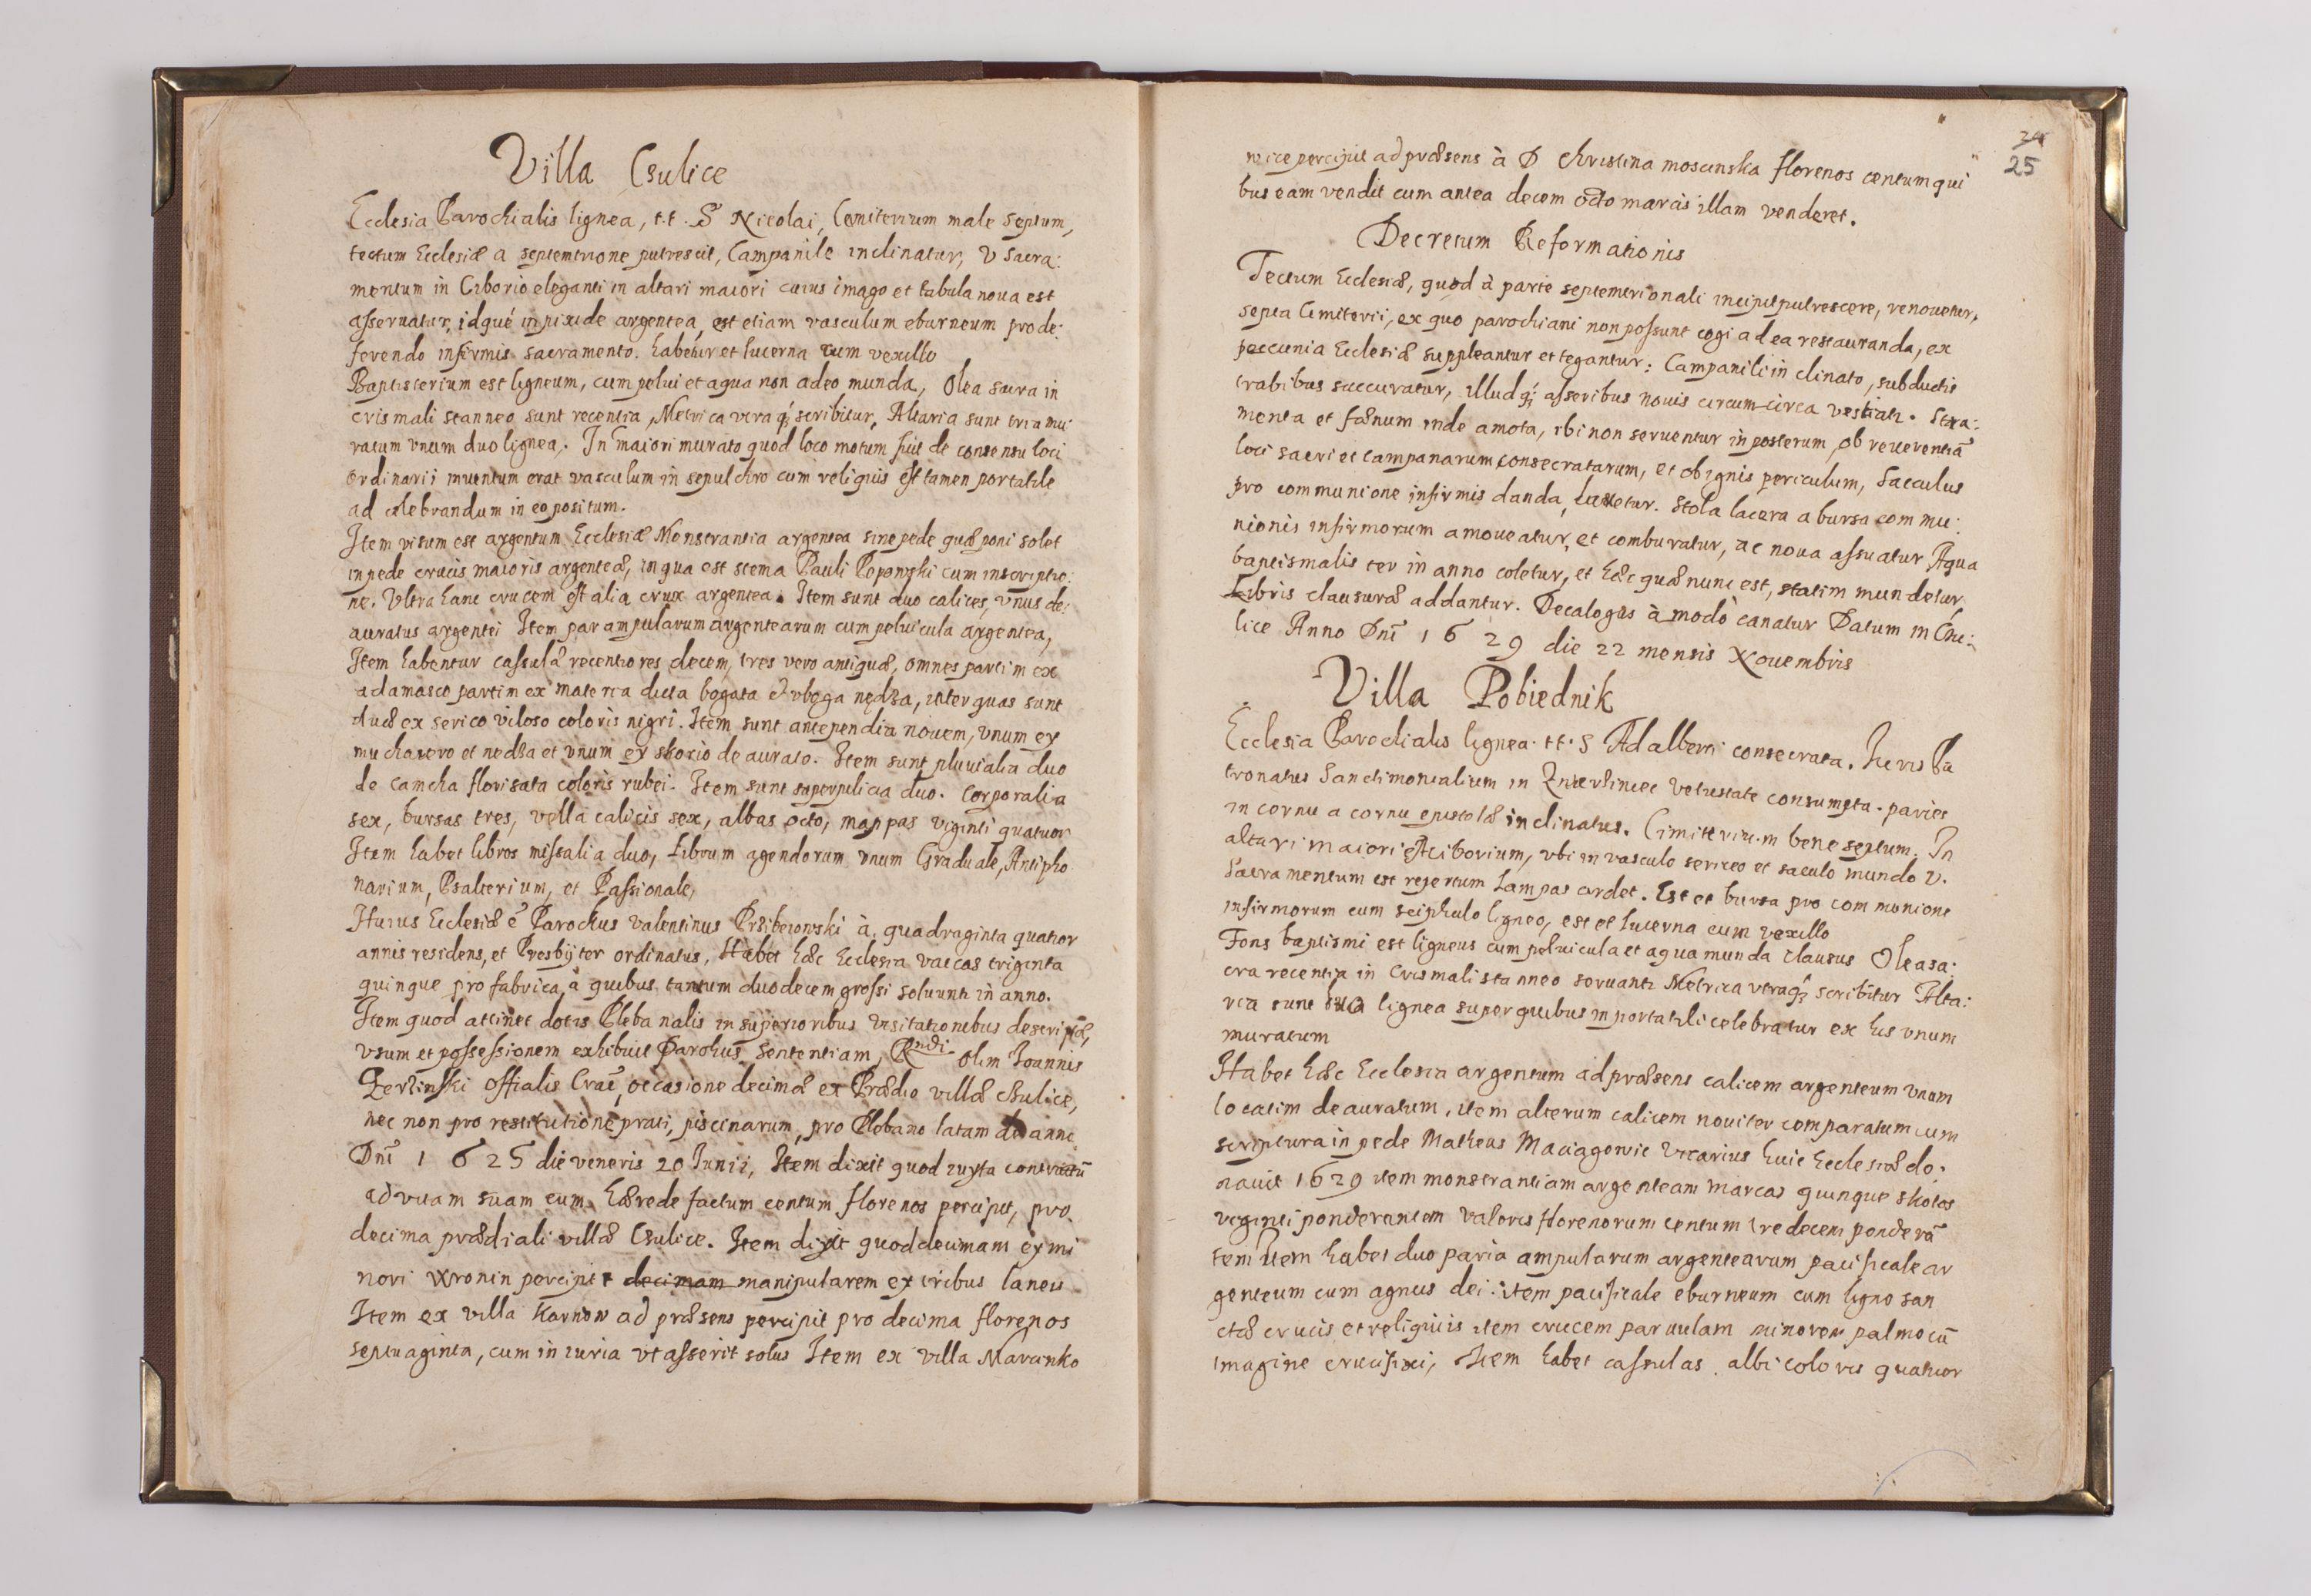 Villa Csulice
Ecclesia Parochialis lignea, t.t. S Nicolai, Cemiterium male septum,
tectum Ecclesiæ a septemtrione putrescit, Campanile inclinatur, V Sacra:
mentum in Ciborio eleganti in altari maiori cuius imago et tabula noua est
asseruatur, idqué in pixide argentea, est etiam vasculum eburneum pro de:
ferendo infirmis sacramento. habetur et lucerna cum vexillo
Baptisterium est ligneum, cum pelui et aqua non adeo munda, Olea sacra in
crismali stanneo sunt recentia, Metrica vtraq́ scribitur, Altaria sunt tria mu
ratum vnum duo lignea. In maiori murato quod loco motum fuit de consensu loci
ordinarii inuentum erat vasculum in sepulchro cum reliquiis est tamen portatile
ad celebrandum in eo positum.
Item visum est argentum Ecclesiæ Monstrantia argentea sine pede quæ poni solet
in pede crucis maioris argenteæ, in qua est stema Pauli Popowski cum inscriptio:
ne. Vltra hanc crucem est alia crux argentea. Item sunt duo calices, vnus de:
auratus argentei Item par ampularum argentearum cum peluicula argentea,
Item habentur cassulæ recentiores decem, tres vero antiquæ, omnes partim ex
adamasco partim ex materia dicta bogata et vboga nędza, inter quas sunt
duæ ex serico viloso coloris nigri. Item sunt antependia nouem, vnum ex
mucharero et nedza et vnum ex skorio deaurato. Item sunt pluuialia duo
de camcha florisata coloris rubei. Item sunt superpilicia duo. Corporalia
sex, bursas tres, vella calicis sex, albas octo, mappas viginti quatuor
Item habet libros missalia duo, Librum agendorum vnum Graduale, Antipho
narium, Psalterium, et Passionale,
Huius Ecclesiæ ē Parochus Valentinus Prziberowski à quadraginta quatuor
annis residens, et Presbijter ordinatus, Habet hæc Ecclesia vaccas triginta
quinque pro fabrica, a quibus tantum duodecem grossi soluunt in anno.
Item quod attinet dotis Plebanalis in superioribus visitationibus descriptæ,
vsum et possessionem exhibuit Parohus sententiam Rndi olim Ioannis
Zerzinski offialis Craē, occasione decimæ ex Prædio villæ Csulice,
nec non pro restitutione prati, piscinarum, pro Plebano latam de anno
Dnī 1625 die veneris 20 Iunii, Item dixit quod iuxta contractū
ad vitam suam cum hærede factum centum florenos percipit, pro
decima prædiali villæ Csulice. Item dixit quod decimam ex mi
nori Wronin percipit decimam manipularem ex tribus laneis
Item ex villa Karnow ad præsens percipit pro decima florenos
septuaginta, cum iniuria vt asserit solus Item ex villa Maranko
24
25
wice percipit ad præsens à D Christina moscinska florenos centum qui
bus eam vendit cum antea decem octo marcis illam venderet.
Decretum Reformationis
Tectum Ecclesiæ, quod à parte septemtrionali incipit putrescere, renouetur,
septa Cimiterii, ex quo parochiani non possunt cogi ad ea restauranda, ex
peccunia Ecclesiæ suppleantur et tegantur: Campanili inclinato, subductis
trabibus succuratur, illudq́ asseribus nouis circum-circa vestiatr. Stra:
menta et fænum inde amota, ibi non seruentur in posterum, ob reuerentiā
loci sacri et campanarum consecratarum, et ob ignis periculum, Sacculus
pro communione infirmis danda, lauetur. Stola lacera a bursa commu:
nionis infirmorum amoueatur, et comburatur, ac noua assuatur Aqua
baptismalis ter in anno coletur, et hæc quæ nunc est, statim mundetur,
Libris clausuræ addantur. Decalogus à modò canatur Datum in Csu:
lice Anno Dnī 1629 die 22 mensis Nouembris
Villa Pobiednik
Ecclesia Parochialis lignea t.t. S Adalberti consecrata. Iuris Pa
tronatus Sanctimonialium in Zwierzincec Vetustate consumpta. paries
in cornu a cornu epistolæ inclinatus. Cimiterium bene septum. In
altari maiori est ciborium, vbi in vasculo sericeo et saculo mundo V.
Sacramentum est repertum Lampas ardet. Est et bursa pro communione
infirmorum cum sciphulo ligneo, est et lucerna cum vexillo
Fons baptismi est ligneus cum peluicula et aqua munda clausus Olea sa:
cra recentia in Crismali stanneo seruantr Metrica vtraq́ scribitur Alta:
ria sunt duo lignea super quibus in portatili celebratur ex his vnum
muratum
Habet hæc Ecclesia argentum ad præsens calicem argenteum vnum
locatim deauratum, item alterum calicem nouiter comparatum cum
scriptura in pede Matheus Maciagowic Vicarius huic Ecclesiæ do:
nauit 1629 item monstrantiam argenteam marcas quinque skotos
viginti ponderantem valoris florenorum centum tredecem ponderā
tem item habet duo paria ampularum argentearum pacificale ar
genteum cum agnus dei: item pacificale eburneum cum ligno san
ctæ crucis et reliquiis item crucem paruulam minorem palmo cū
imagine crucifixi, Item habet cassulas albi coloris quatuor